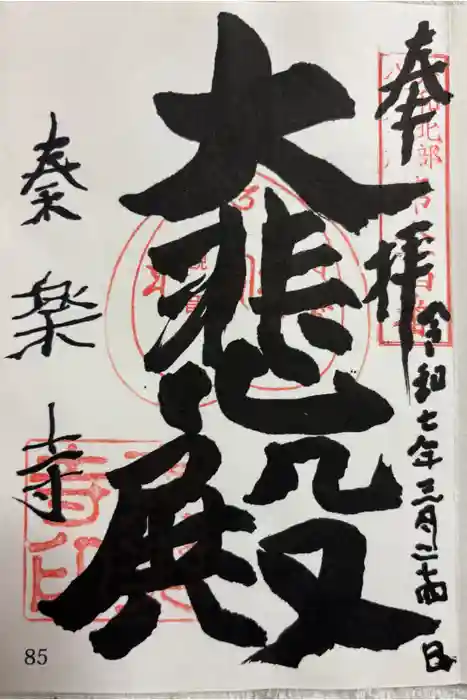 奉拝
令和七年三月二十四日
大悲殿
秦楽寺
寺印
85